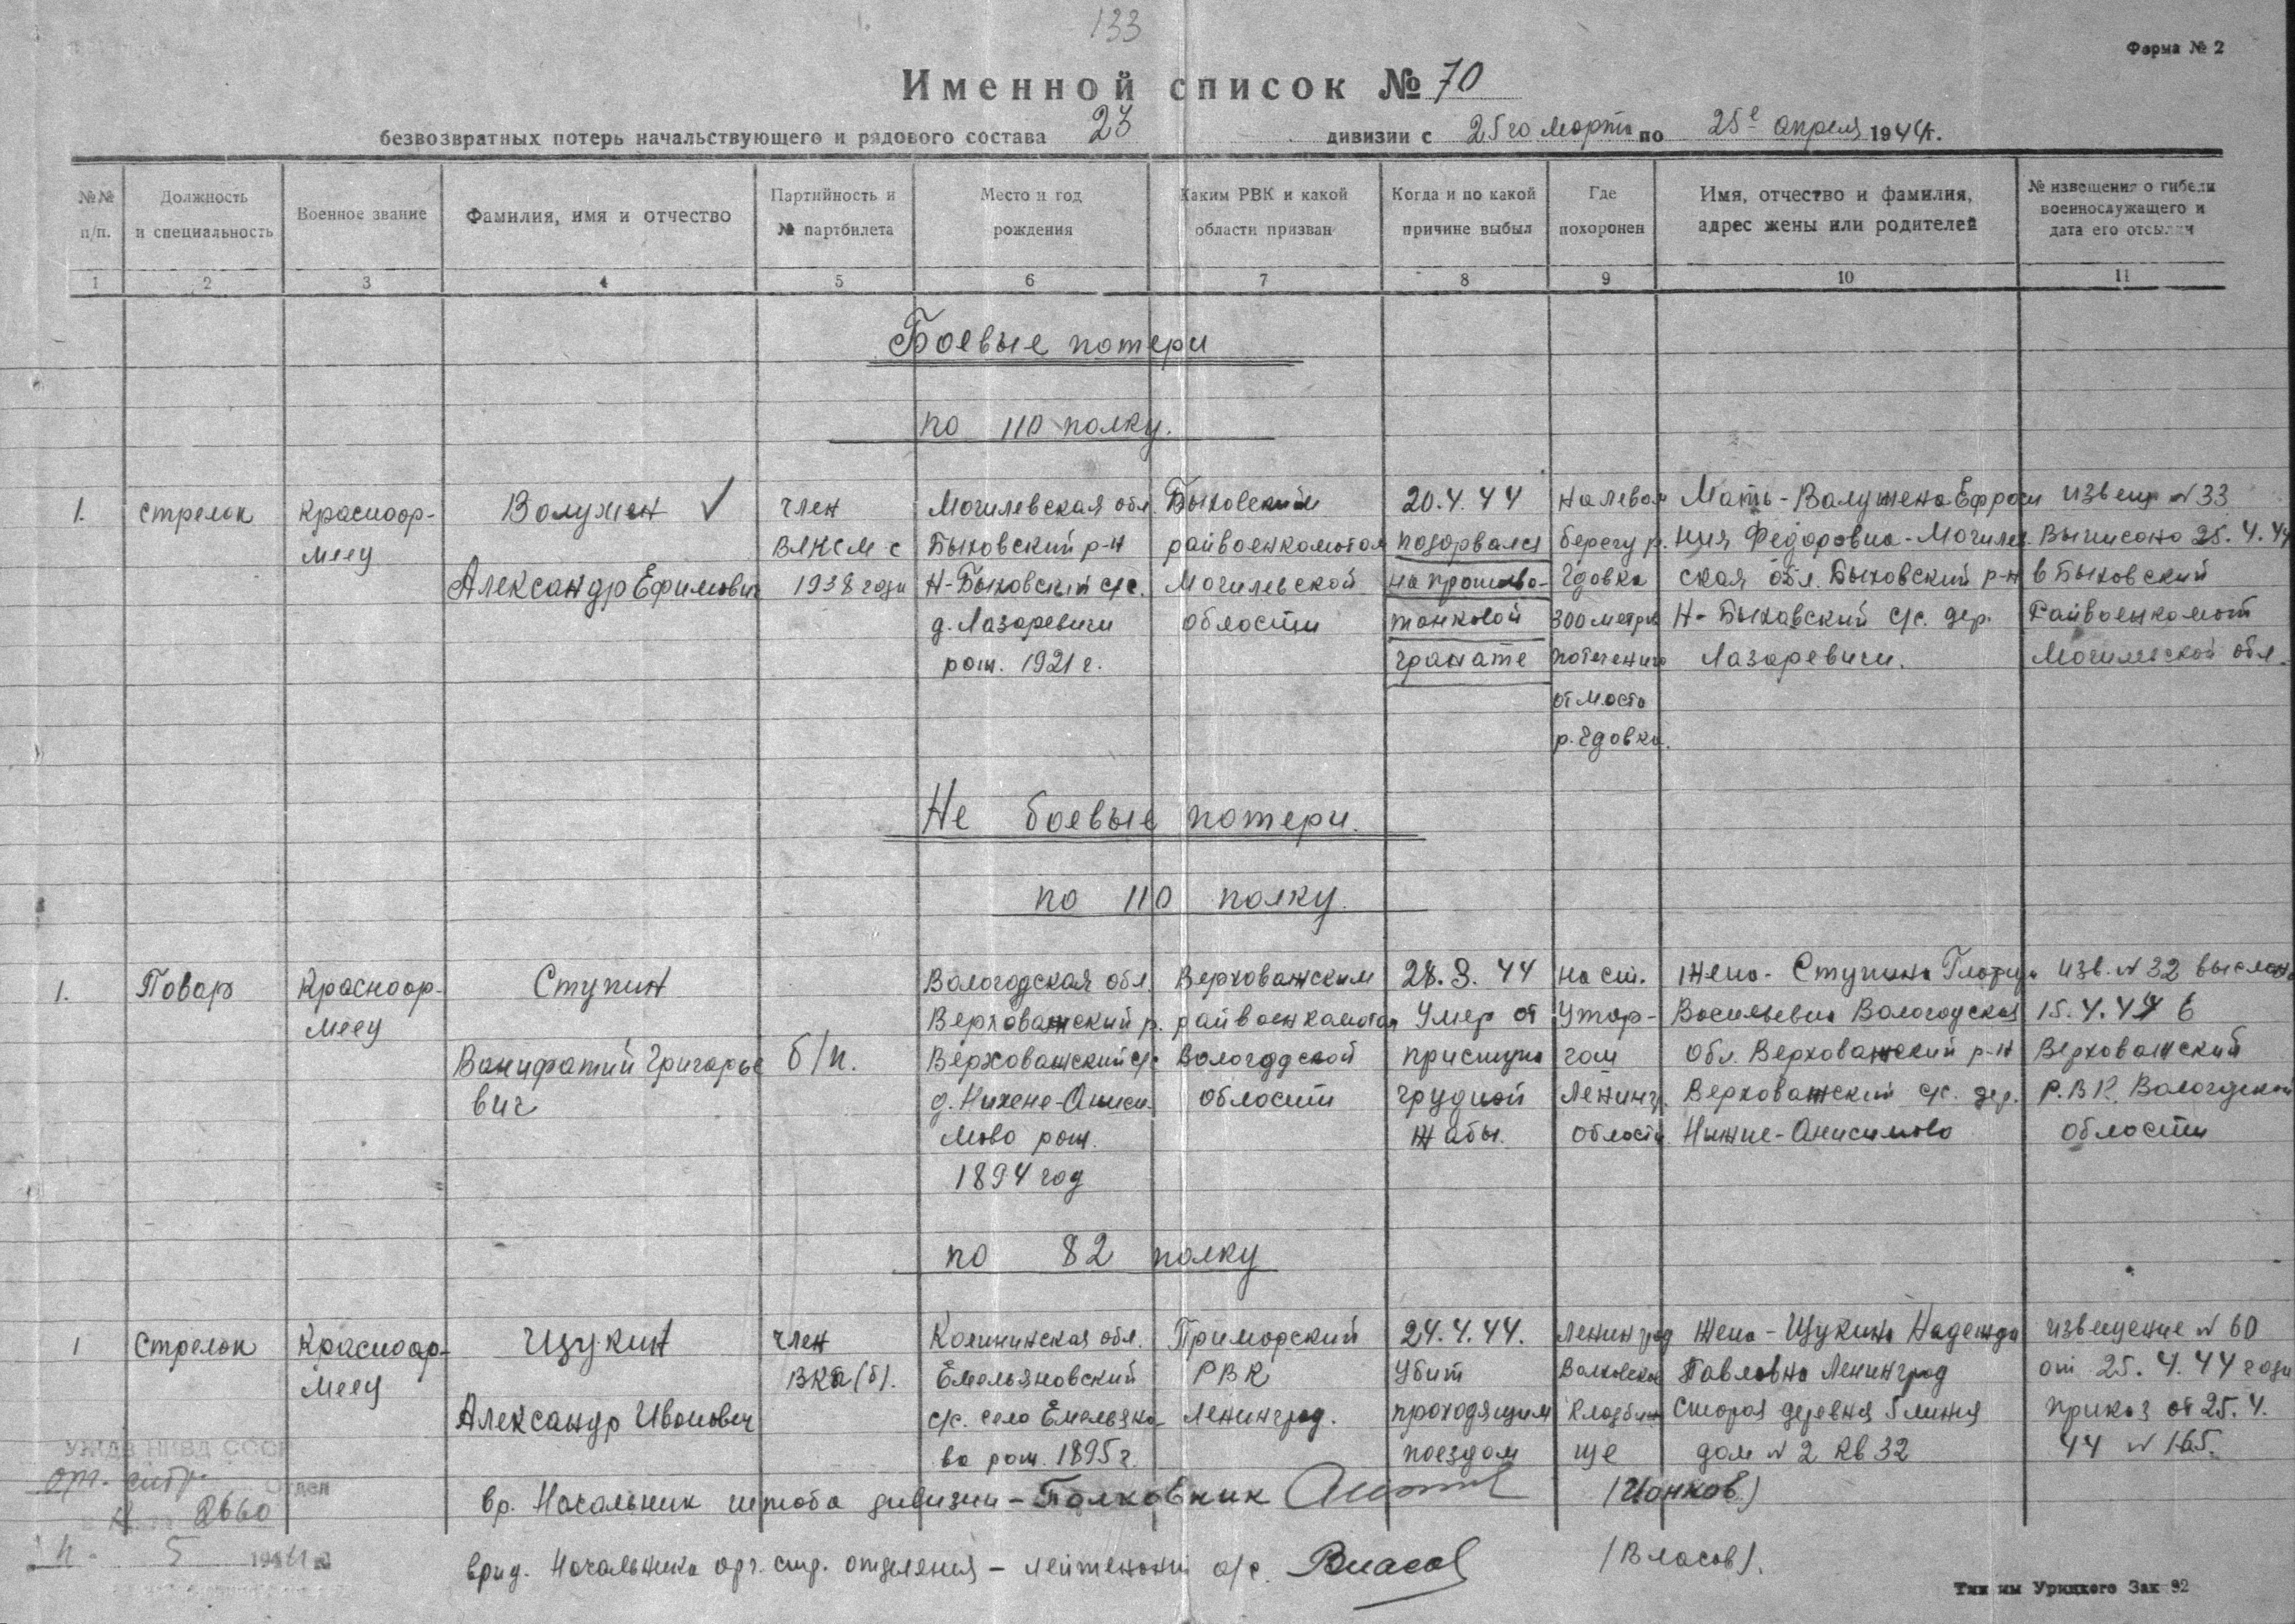 133
Форма № 2
Именной список № 70
безвозвратных потерь начальствующего и рядового состава 23 дивизии с 25го Марта по 25е Апреля 1944г.
№№ п/п.
Должность и специальность
Военное звание
Фамилия, имя и отчество
Партийность и № партбилета
Место и год рождения
Каким РВК и какой области призван
Когда и по какой причине выбыл
Где похоронен
Имя, отчество и фамилия, адрес жены или родителей
№ извещения о гибели военнослужащего и дата его отсылки
1 2 3 4 5 6 7 8 9 10 11
Боевые потери
по 110 полку.
1.
стрелок
Красноор-
меец
Валужен ✓
Александр Ефимович
член
ВЛКСМ с
1938 года
Могилевская обл.
Быховский р-н
Н-Быховский с/с.
д. Лазаревичи
рож. 1921 г.
Быховским
райвоенкоматом
Могилевской
области
20.4.44
подорвался
на противо-
танковой
гранате
на левом
берегу р.
Удовка
300 метров
по течению
от моста
р. Удовка.
Мать - Валужена Ефроси
ния Федоровна - Могилев
ская обл. Быховский р-н
Н-Быховский с/с. дер.
Лазаревичи.
извещ. № 33
Выписано 25.4.44
в Быховский
Райвоенкомат
Могилевской обл.
Не боевые потери.
по 110 полку.
1.
Повар
Красноор-
меец
Ступин
Вонифатий Григорье
вич
б/п.
Вологодская обл.
Верховажский р.
Верховажский с/с
д. Нижене-Аниси
мово рож.
1894 год
Верховажским
райвоенкоматом
Вологодской
области
28.3.44
Умер от
приступа
грудной
жабы.
на ст.
Утор-
гош
Ленингр.
области
жена - Ступина Глафира
Васильевна Вологодская
обл. Верховажский р-н
Верховажский с/с. дер.
Нижне-Анисимово
изв. № 32 выслано
15.4.44 в
Верховажский
Р.В.К. Вологодской
области
по 82 полку
1
Стрелок
Красноор-
меец
Щукин
Александр Иванович
член
ВКП(б).
Калининская обл.
Емельяновский
с/с. село Емельяно-
во рож. 1895 г.
Приморский
РВК
Ленинград.
24.4.44.
Убит
проходящим
поездом
Ленинград
Волковское
кладби
ще
жена - Щукина Надежда
Павловна Ленинград
Старая деревня 5 линия
дом № 2 кв 32
извещение № 60
от 25.4.44 года
приказ от 25.4.
44 № 165.
вр. Начальник штаба дивизии - Полковник (Ионков)
врид. Начальника орг. стр. отделения - лейтенант а/с. Власов (Власов).
НКВД СССР
орг. стр. Отдел
8660
5 1944 г.
Тип им Урицкого Зак 92